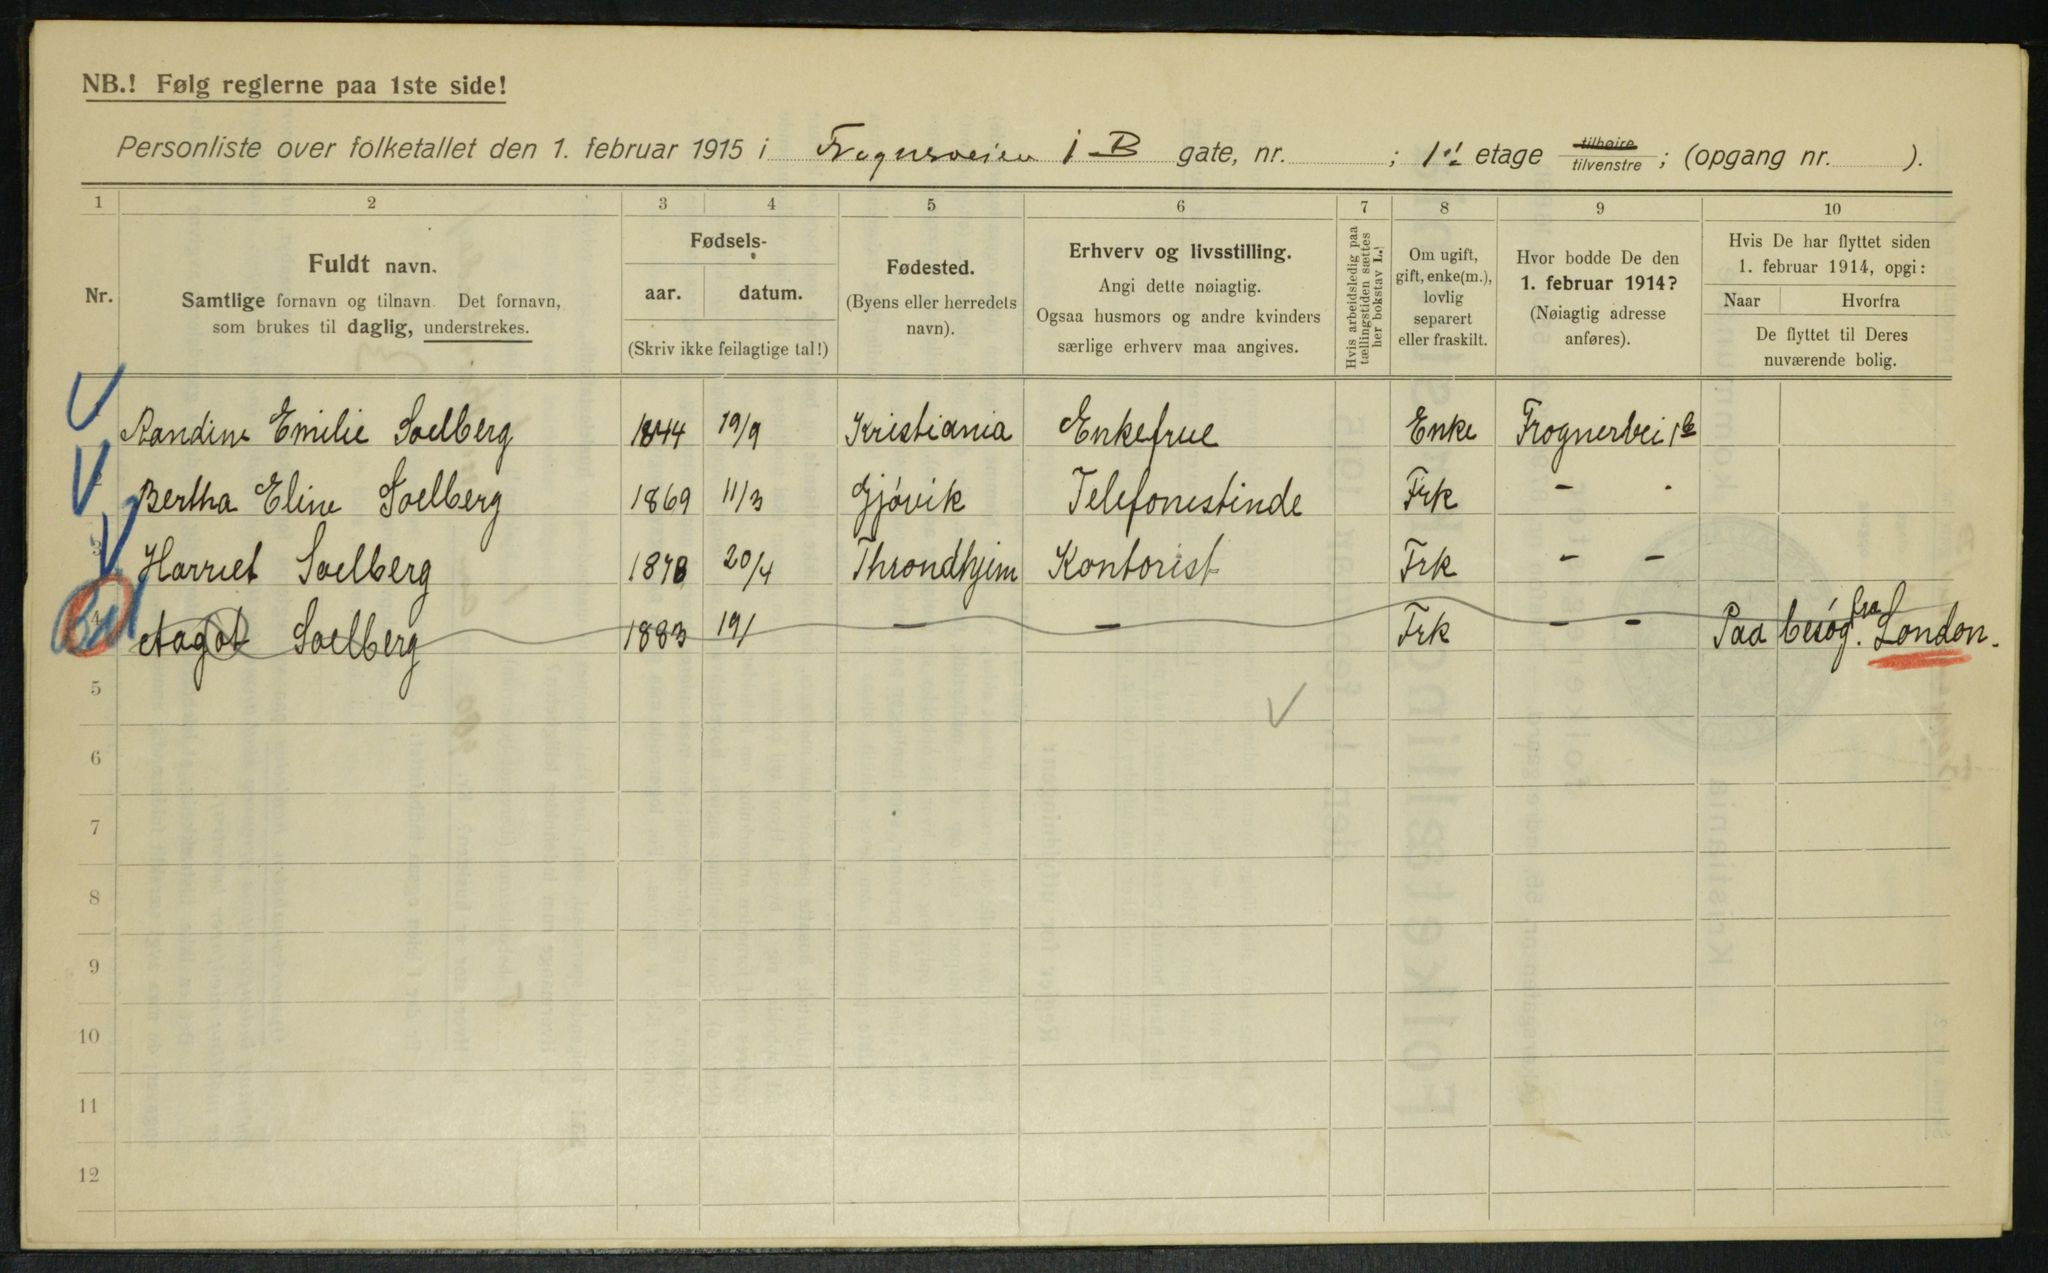 NB.! Følg reglerne paa 1ste side!
Personliste over folketallet den 1. februar 1915 i Frognerveien 1 B gate, nr. ; 1ste etage tilhøire tilvenstre ; (opgang nr. ).
1 2 3 4 5 6 7 8 9 10
Nr.
Fuldt navn.
Samtlige fornavn og tilnavn. Det fornavn,
som brukes til daglig, understrekes.
Fødsels-
aar. datum.
(Skriv ikke feilagtige tal!)
Fødested.
(Byens eller herredets
navn).
Erhverv og livsstilling.
Angi dette nøiagtig.
Ogsaa husmors og andre kvinders
særlige erhverv maa angives.
Hvis arbeidsledig paa
tællingstiden sættes
her bokstav L.
Om ugift,
gift, enke(m.),
lovlig
separert
eller fraskilt.
Hvor bodde De den
1. februar 1914?
(Nøiagtig adresse
anføres).
Hvis De har flyttet siden
1. februar 1914, opgi:
Naar Hvorfra
De flyttet til Deres
nuværende bolig.
Randine Emilie Soelberg 1844 19/9 Kristiania Enkefrue Enke Frognervei 1b
2 Bertha Eline Soelberg 1869 11/3 Gjøvik Telefonistinde Frk - -
3 Harriet Soelberg 1878 20/4 Throndhjem Kontorist Frk - -
4 Aagot Soelberg 1883 19/1 - - Frk - - Paa besøg fra London.
5
6
7
8
9
10
11
12